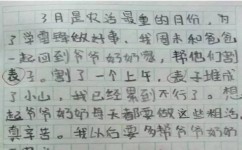 3月是农活最重的月份,为
了学雷锋做好事,我周末和爸爸
一起回到爷爷奶奶家,帮他们割
麦子。割了一个上午,麦子堆成
了小山,我已经累到不行了。想
起爷爷奶奶每天都要做这些粗活,
真辛苦。我以后要多帮爷爷奶奶